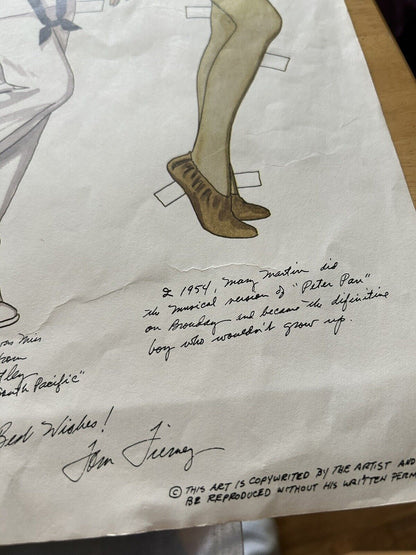 In 1954, Mary Martin did
the musical version of "Peter Pan"
on Broadway and became the difinitive
boy who wouldn't grow up.
Miss
"South Pacific"
Best Wishes!
Tom Tierney
© THIS ART IS COPYWRITED BY THE ARTIST AND
BE REPRODUCED WITHOUT HIS WRITTEN PERM